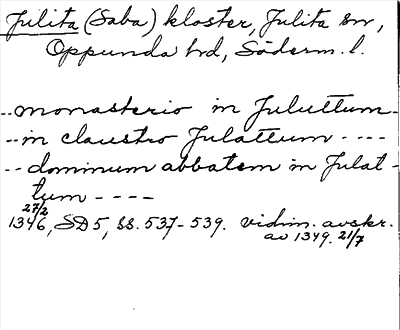 Julita (Saba) kloster, Julita sn,
Oppunda hd, Söderm. l.
.. monasterio in Juluttum -
.. in claustro Julattum ----
.. dominum abbatem in Julat-
tum ----
27/2
1346, SD 5, ss. 537-539. vidim. avskr.
av 1349. 21/7